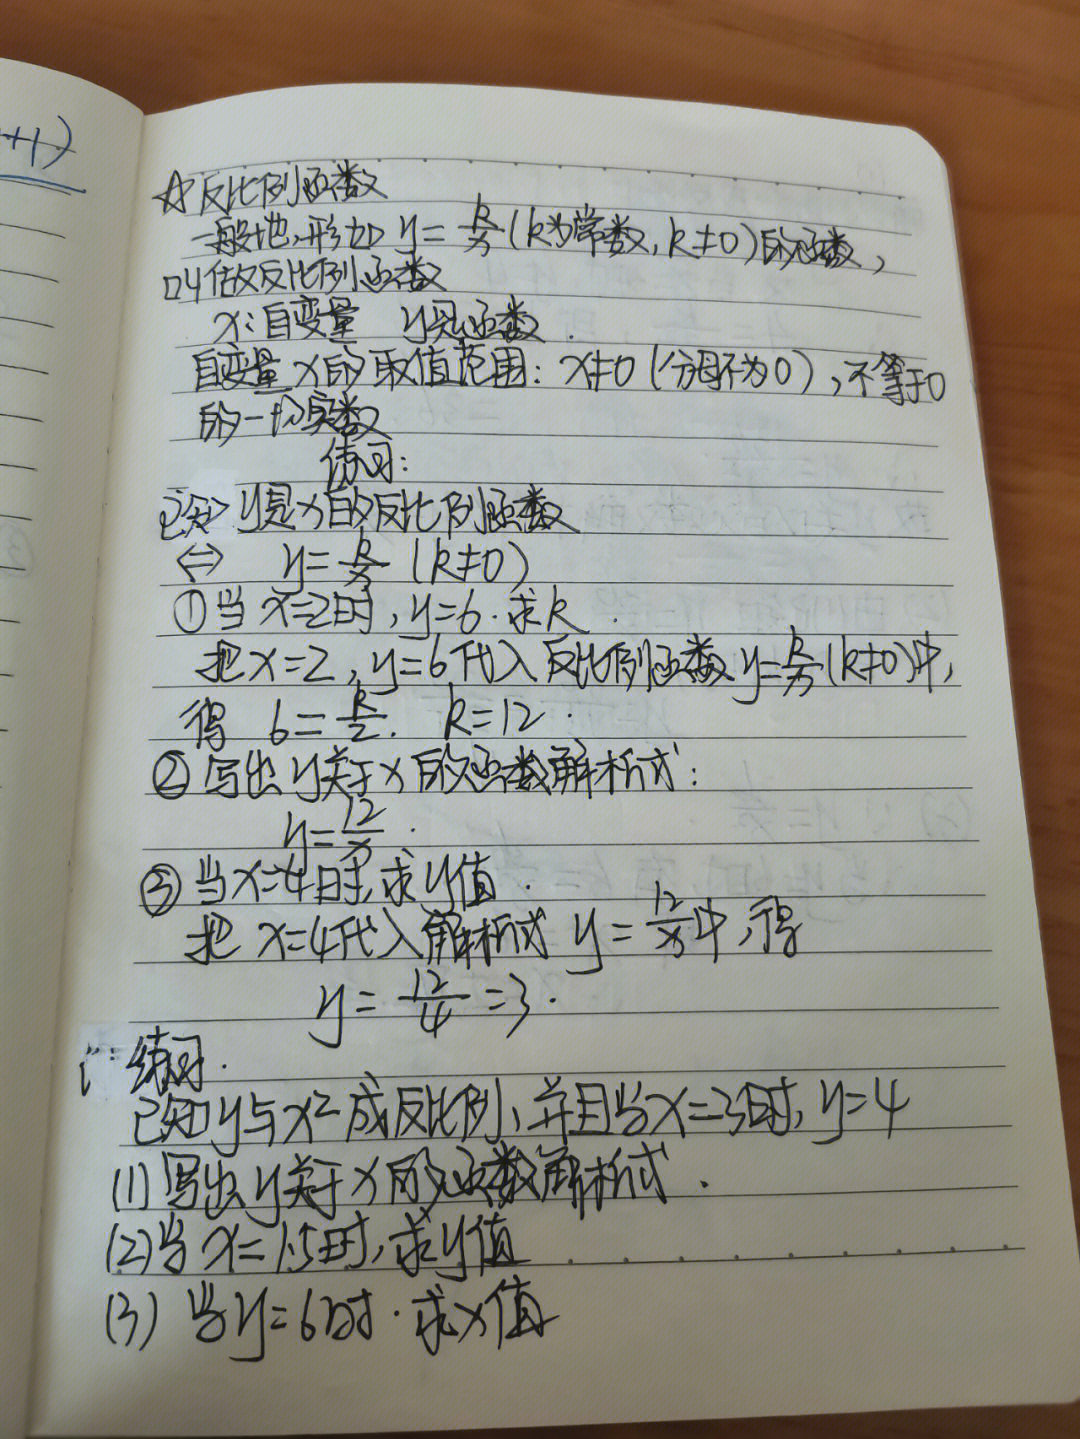 +1)
☆反比例函数
一般地,形如 y=k/x (k为常数,k≠0)的函数,
叫做反比例函数
x:自变量 y是函数.
自变量x的取值范围:x≠0(分母不为0),不等于0
的一切实数
练习:
已知y是x的反比例函数
⇔ y=k/x (k≠0)
①当x=2时,y=6.求k.
把x=2,y=6代入反比例函数y=k/x(k≠0)中,
得 6=k/2. k=12.
②写出y关于x的函数解析式:
y=12/x.
③当x=4时,求y值.
把x=4代入解析式y=12/x中,得
y=12/4=3.
练习.
已知y与x²成反比例,并且当x=3时,y=4
(1)写出y关于x的函数解析式.
(2)当x=1.5时,求y值
(3)当y=6时.求x值